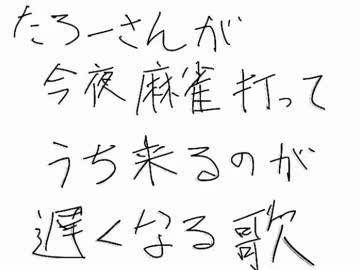 たろーさんが
今夜麻雀打って
うち来るのが
遅くなる歌